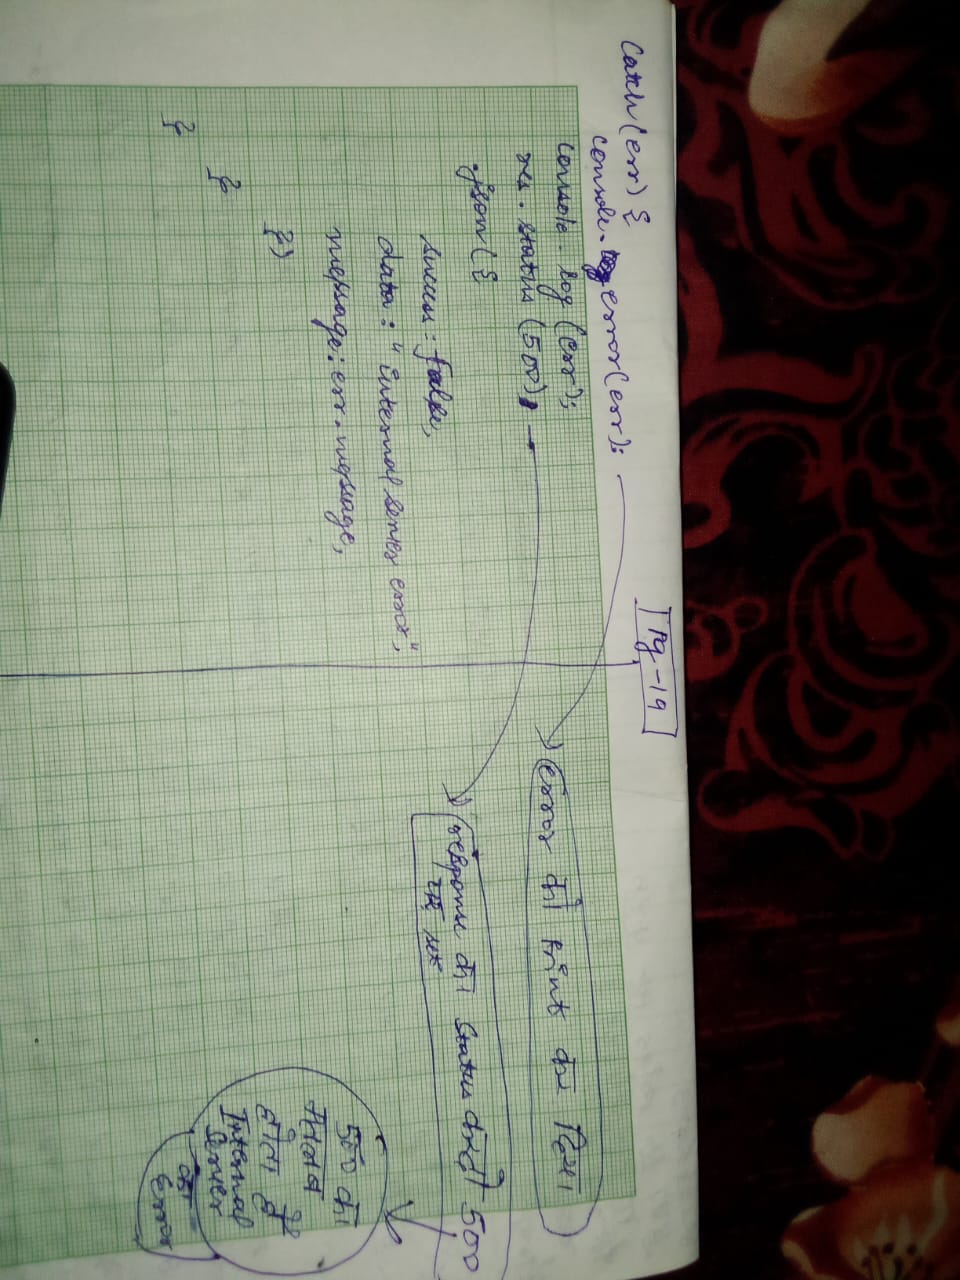 Pg-19
Catch(err) {
console.error(err);
console.log(err);
res.status(500)
.json({
success: false,
data: "internal server error",
message: err.message,
})
}
}
error को print कर दिया
response की status code 500
पर set
500 का
मतलब
होता है
Internal
Server
Error